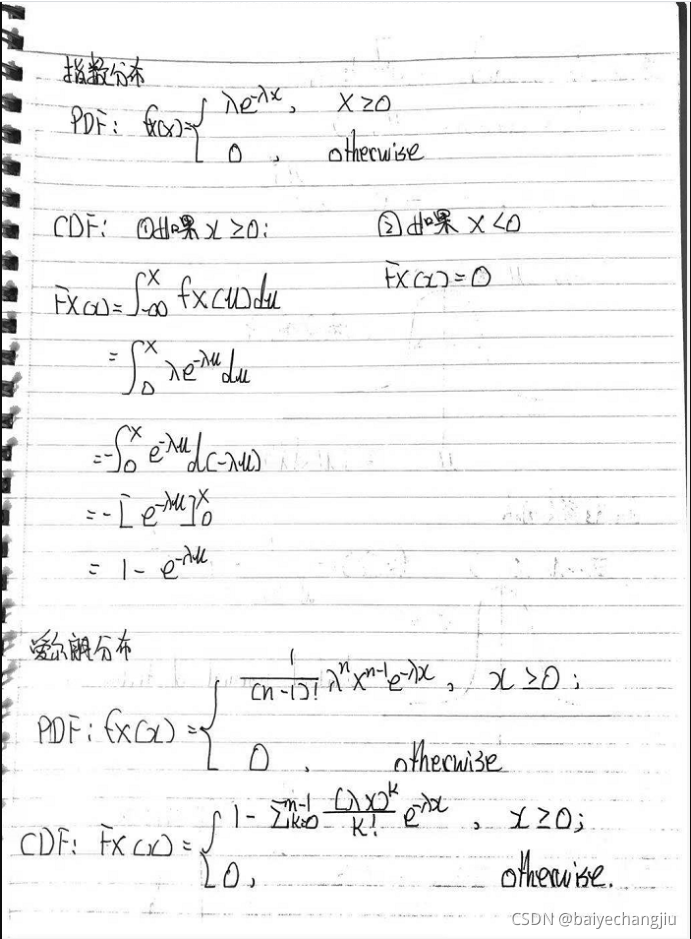 指数分布
PDF: fX(x)={ λe^{-λx}, X≥0
0, otherwise
CDF: ①如果 x≥0: ②如果 X<0
FX(x)=∫_{-∞}^{X} fX(u)du FX(x)=0
=∫_0^X λe^{-λu}du
=-∫_0^X e^{-λu}d(-λu)
=-[e^{-λu}]_0^X
=1-e^{-λu}
爱尔朗分布
PDF: fX(x)={ \frac{1}{(n-1)!}λ^n x^{n-1}e^{-λx}, x≥0;
0, otherwise
CDF: FX(x)={ 1-∑_{k=0}^{n-1} \frac{(λX)^k}{k!} e^{-λx}, x≥0;
0, otherwise.
CSDN @baiyechangjiu